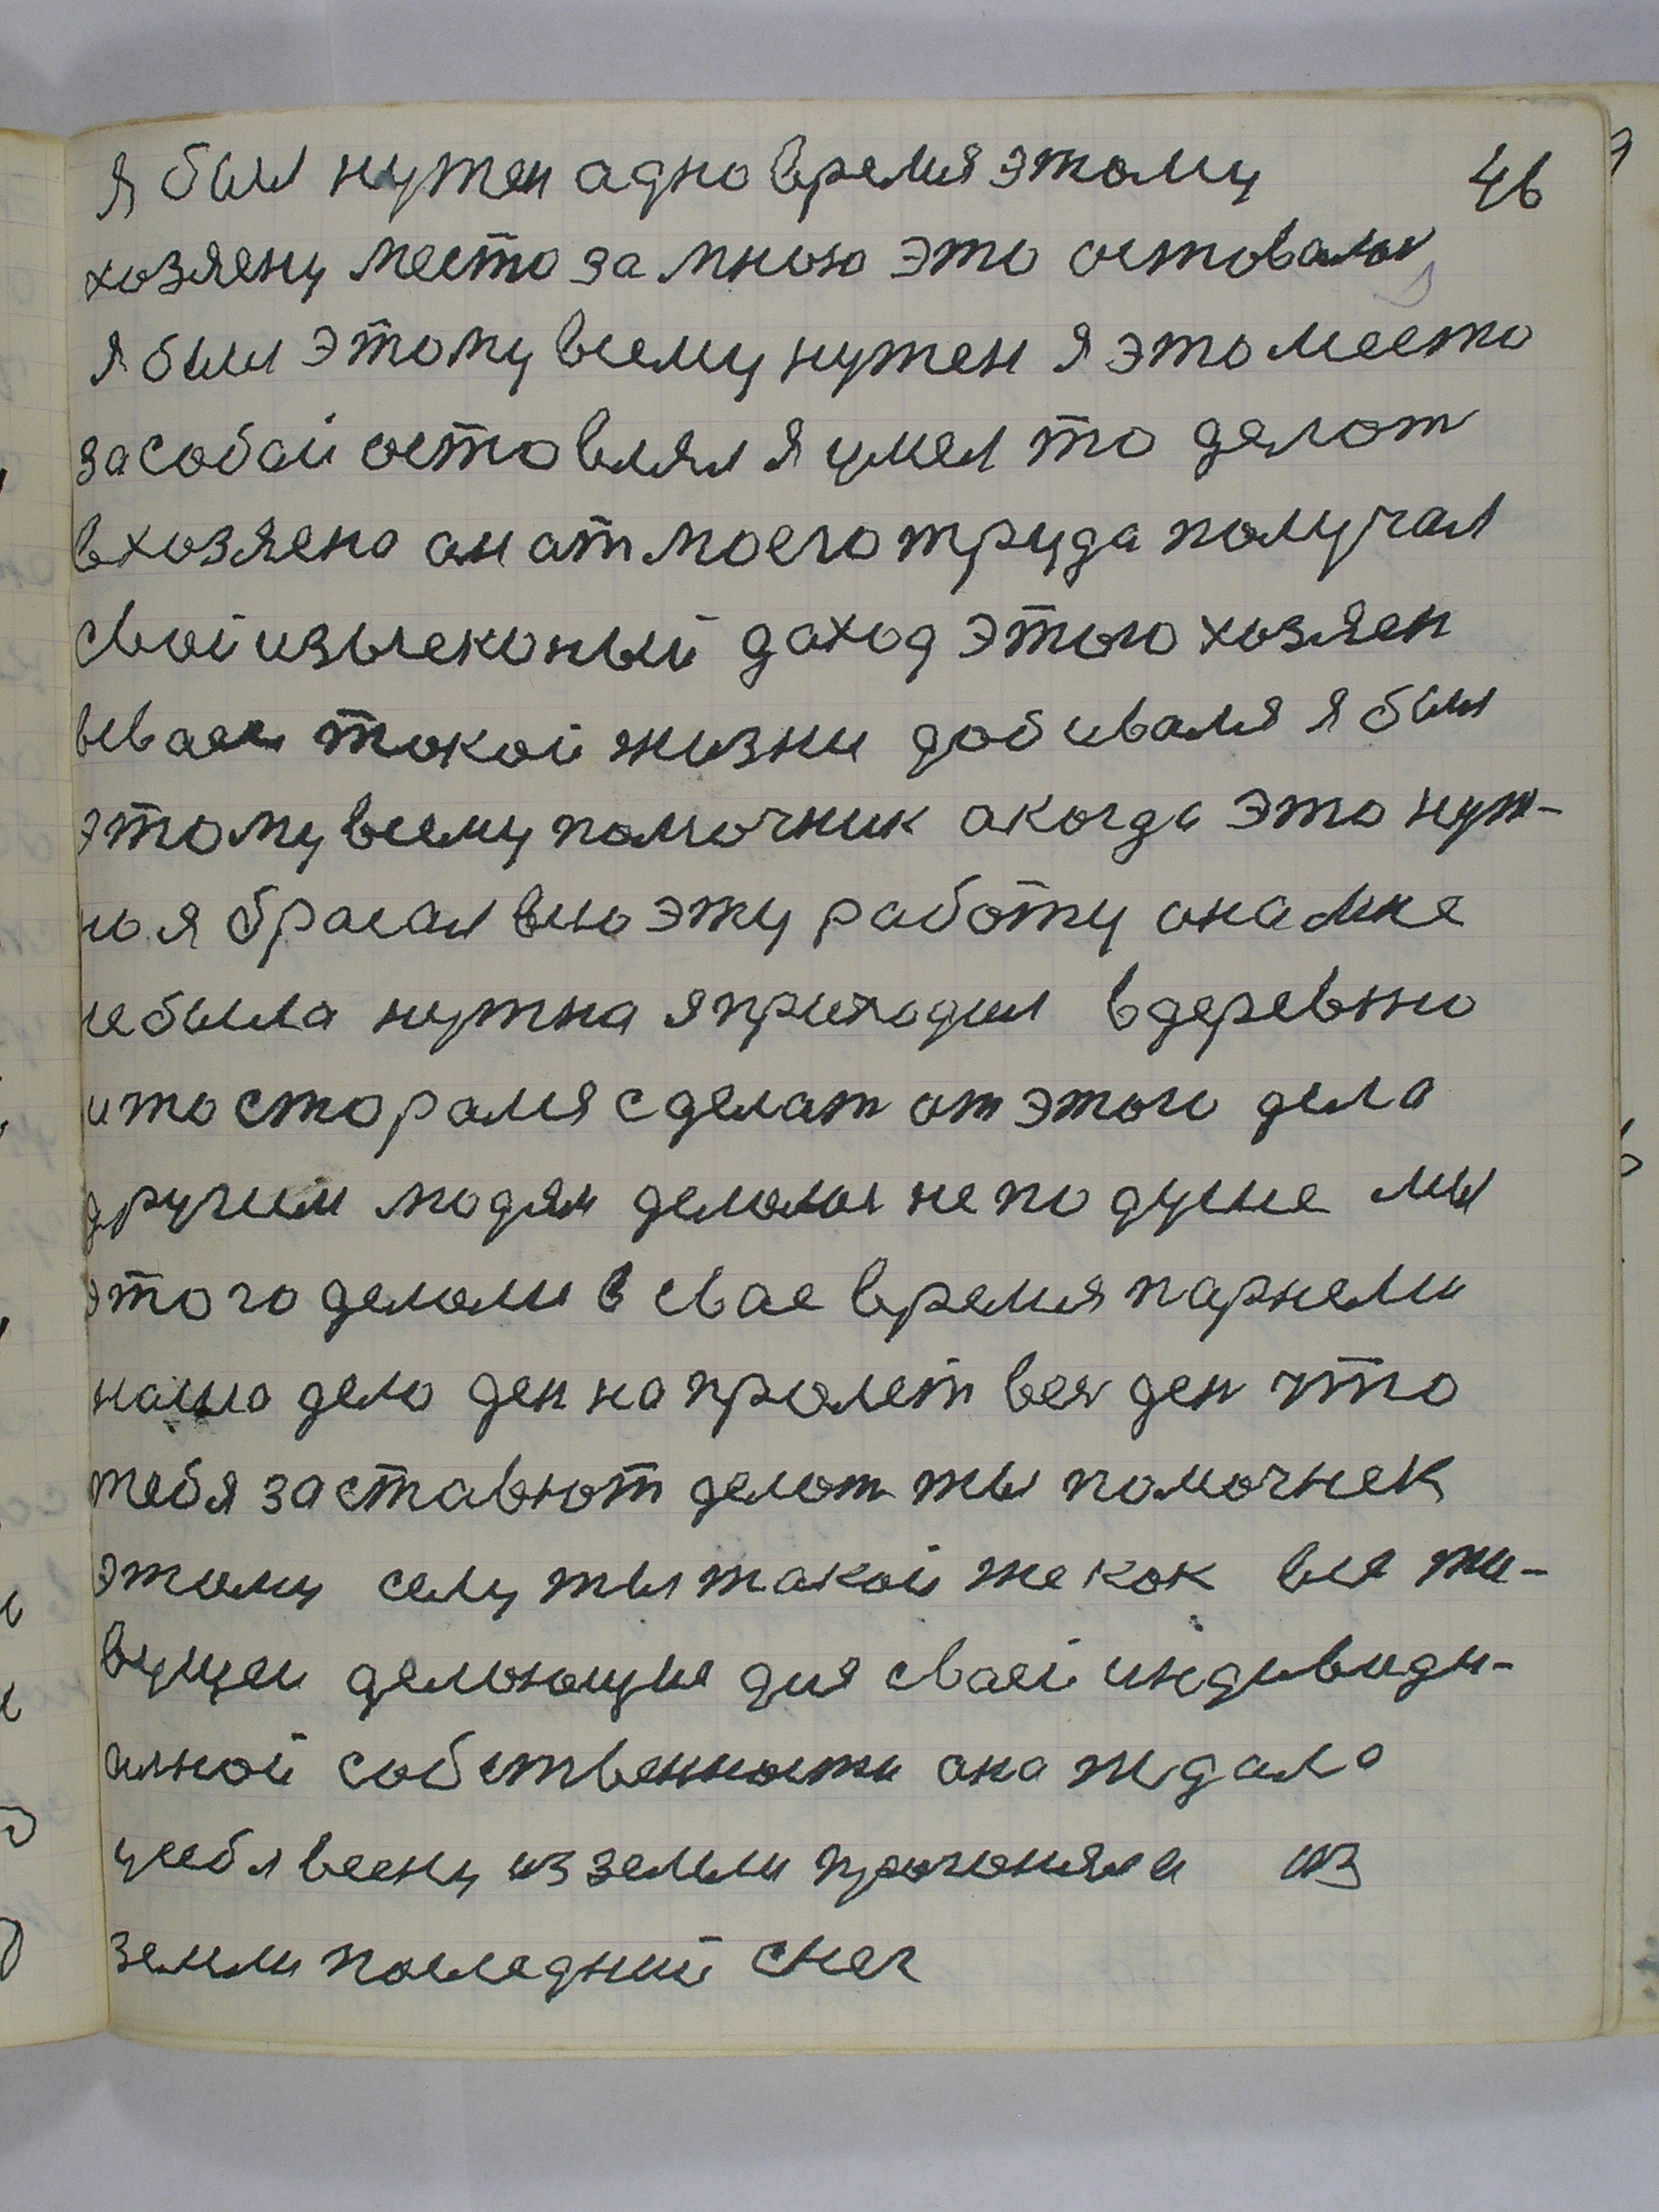 Я был нужен адно время этому 46
хозяену место за мною это оставалос
я был этому всему нужен я это место
за собай оставлял я умел то делат
в хозяена он ат моего труда получал
свой изысконый даход этого хозяен
в сваей такой жизни добивался я был
этому всему помочник а когда это нуж-
но я бросал всю эту работу она мне
не была нужна я приходил в деревню
и то старался сделат от этого дела
другим людям делалос не по душе мы
этого делали в свае время парнями
нашо дело ден на пролет вес ден что
тебя заставют делат ты помочнек
этому селу ты такой же как все жи-
вущеи делающие для сваей индивиду-
алной собственности она ждала
у себя весну из земли прогоняла из
земли последний снег